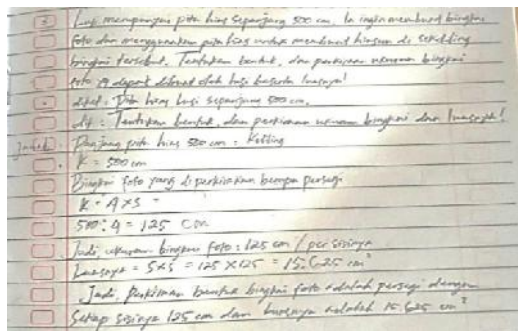 3 Lusi mempunyai pita hias sepanjang 500 cm. Ia ingin membuat bingkai
foto dan menggunakan pita hias untuk membuat hiasan di sekeliling
bingkai tersebut. Tentukan bentuk, dan perkiraan ukuran bingkai
foto yg dapat dibuat oleh lusi beserta luasnya!
diket : Pita hias lusi sepanjang 500 cm.
dit : Tentukan bentuk, dan perkiraan ukuran bingkai dan luasnya!
Jawab : Panjang pita hias 500 cm = Keliling
K = 500 cm
Bingkai foto yang di perkirakan berupa persegi
K = 4 x S =
500 : 4 = 125 cm
Jadi, ukuran bingkai foto : 125 cm / per sisinya
Luasnya = S x S = 125 x 125 = 15.625 cm²
Jadi, Perkiraan bentuk bingkai foto adalah persegi dengan
Setiap sisinya 125 cm dan luasnya adalah 15.625 cm²